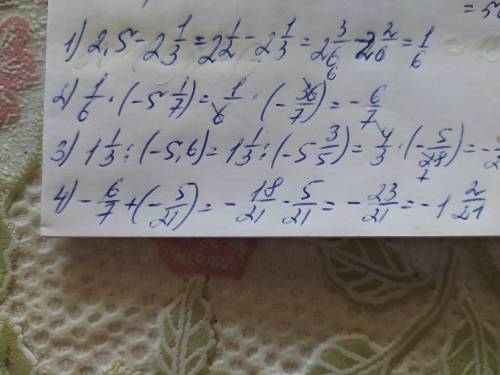 = 5
1) 2,5 - 2 1/3 = 2 1/2 - 2 1/3 = 2 3/6 - 2 2/6 = 1/6
2) 1/6 · (-5 1/7) = 1/6 · (-36/7) = -6/7
3) 1 1/3 : (-5,6) = 1 1/3 : (-5 3/5) = 4/3 · (-5/28) = -
4) -6/7 + (-5/21) = -18/21 - 5/21 = -23/21 = -1 2/21